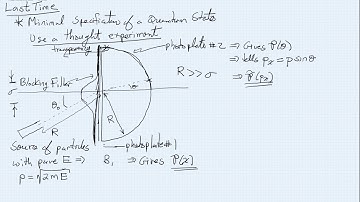 Last Time
* Minimal Specification of a Quantum State
Use a thought experiment
transparency
photoplate #2 ⇒ Gives P(θ)
⇒ tells pₓ = p sin θ
Blocking Filter
R >> σ ⇒ P̃(pₓ)
σ
θ₀
R
R
Source of particles
with pure E ⇒
photoplate #1
⇒ Gives P(x)
p = √2mE